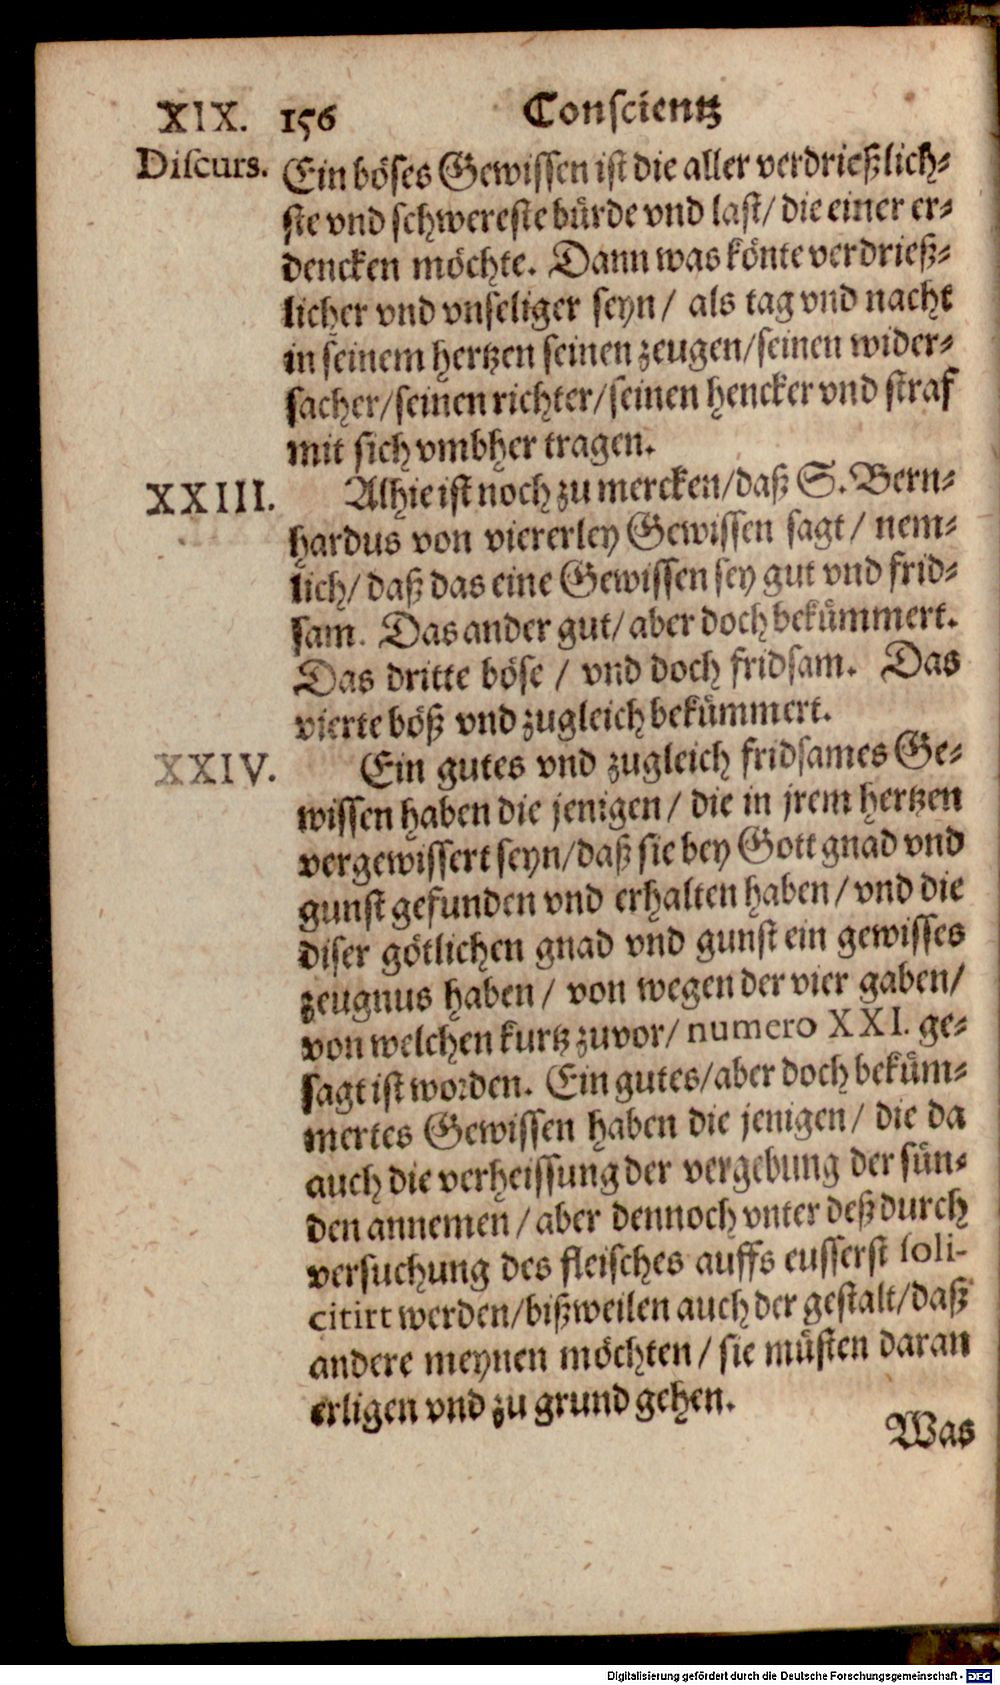 XIX. 156 Conscientz
Discurs.
Ein böses Gewissen ist die aller verdrießlich-
ste vnd schwereste bürde vnd last/ die einer er-
dencken möchte. Dann was könte verdrieß-
licher vnd vnseliger seyn/ als tag vnd nacht
in seinem hertzen seinen zeugen/seinen wider-
sacher/seinen richter/seinen hencker vnd straf
mit sich vmbher tragen.
XXIII. Alhie ist noch zu mercken/daß S. Bern-
hardus von viererley Gewissen sagt/ nem-
lich/ daß das eine Gewissen sey gut vnd frid-
sam. Das ander gut/ aber doch bekümmert.
Das dritte böse / vnd doch fridsam. Das
vierte böß vnd zugleich bekümmert.
XXIV. Ein gutes vnd zugleich fridsames Ge-
wissen haben die jenigen/ die in jrem hertzen
vergewissert seyn/daß sie bey Gott gnad vnd
gunst gefunden vnd erhalten haben/ vnd die
diser götlichen gnad vnd gunst ein gewisses
zeugnus haben/ von wegen der vier gaben/
von welchen kurtz zuvor/ numero XXI. ge-
sagt ist worden. Ein gutes/aber doch beküm-
mertes Gewissen haben die jenigen/ die da
auch die verheissung der vergebung der sün-
den annemen/ aber dennoch vnter deß durch
versuchung des fleisches auffs eusserst soli-
citirt werden/bißweilen auch der gestalt/daß
andere meynen möchten/ sie müsten daran
erligen vnd zu grund gehen.
Was
Digitalisierung gefördert durch die Deutsche Forschungsgemeinschaft - DFG